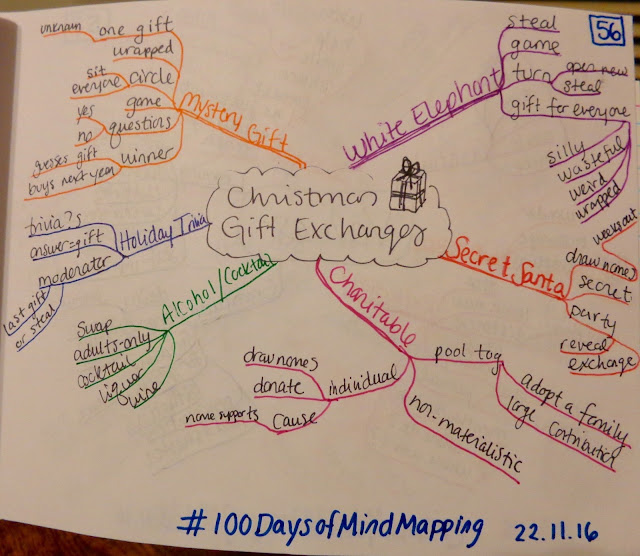 56
Christmas
Gift Exchanges
White Elephant
steal
game
turn
open new
steal
gift for everyone
silly
wasteful
weird
wrapped
Secret Santa
weeks out
draw names
secret
party
reveal
exchange
Charitable
pool tog
adopt a family
large contribution
non-materialistic
individual
draw names
donate
cause
name supports
Alcohol/Cocktail
swap
adults-only
cocktail
liquor
wine
Holiday Trivia
trivia ?s
answer=gift
moderator
last gift
or steal
Mystery Gift
one gift
unknown
wrapped
circle
sit
everyone
game
questions
yes
no
winner
guesses gift
buys next year
#100DaysofMindMapping
22.11.16